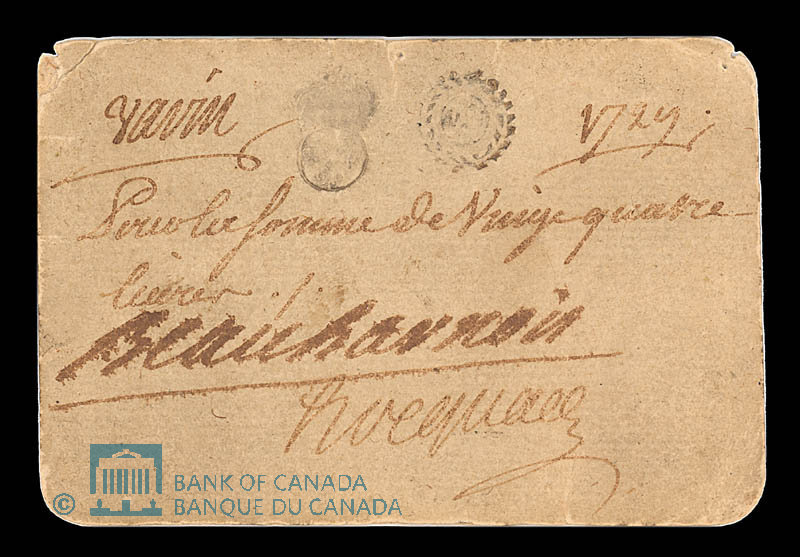 varin 1729.
Pour la somme de Vingt quatre
livres ./.
Beauharnois
hocquart
© BANK OF CANADA
BANQUE DU CANADA